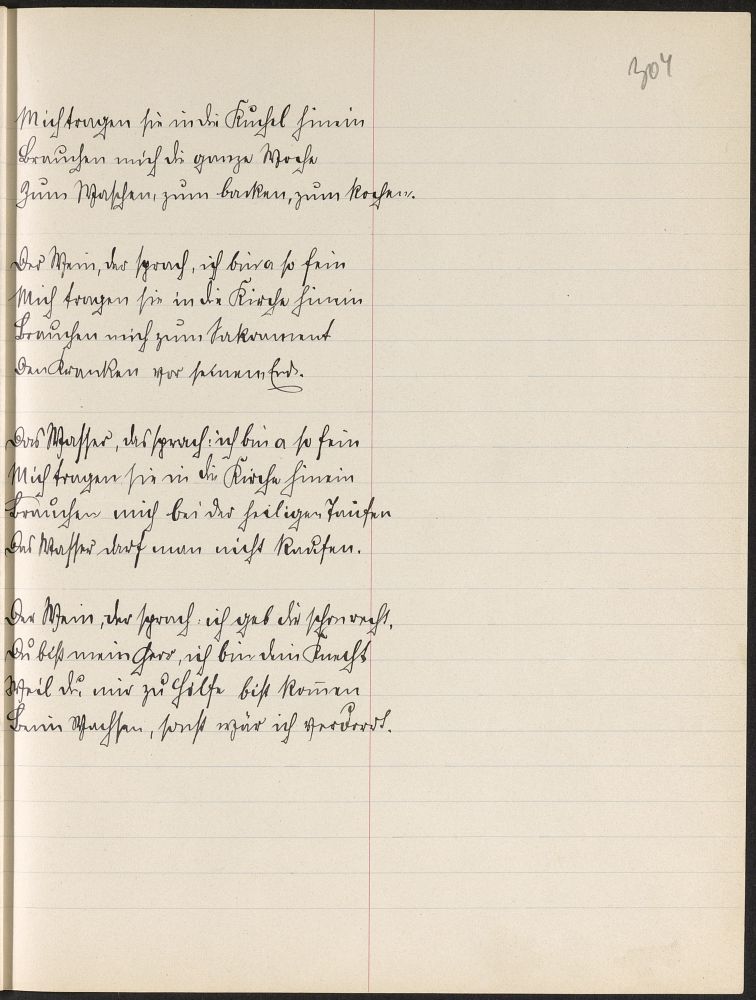 304
Mich tragen sie in die Kuchel hinein
Brauchen mich die ganze Woche
Zum Waschen, zum backen, zum kochen.
Der Wein, der sprach, ich bin a so fein
Mich tragen sie in die Kirche hinein
Brauchen mich zum Sakrament
Den Kranken vor seinem End.
Das Wasser, das sprach: ich bin a so fein
Mich tragen sie in die Kirche hinein
Brauchen mich bei der heiligen Taufen
Das Wasser darf man nicht kaufen.
Der Wein, der sprach: ich geb dir schon recht,
Du bist mein Herr, ich bin dein Knecht
Weil du mir zu Hilfe bist kom̅en
Beim Wachsen, sonst wär ich verdorrt.